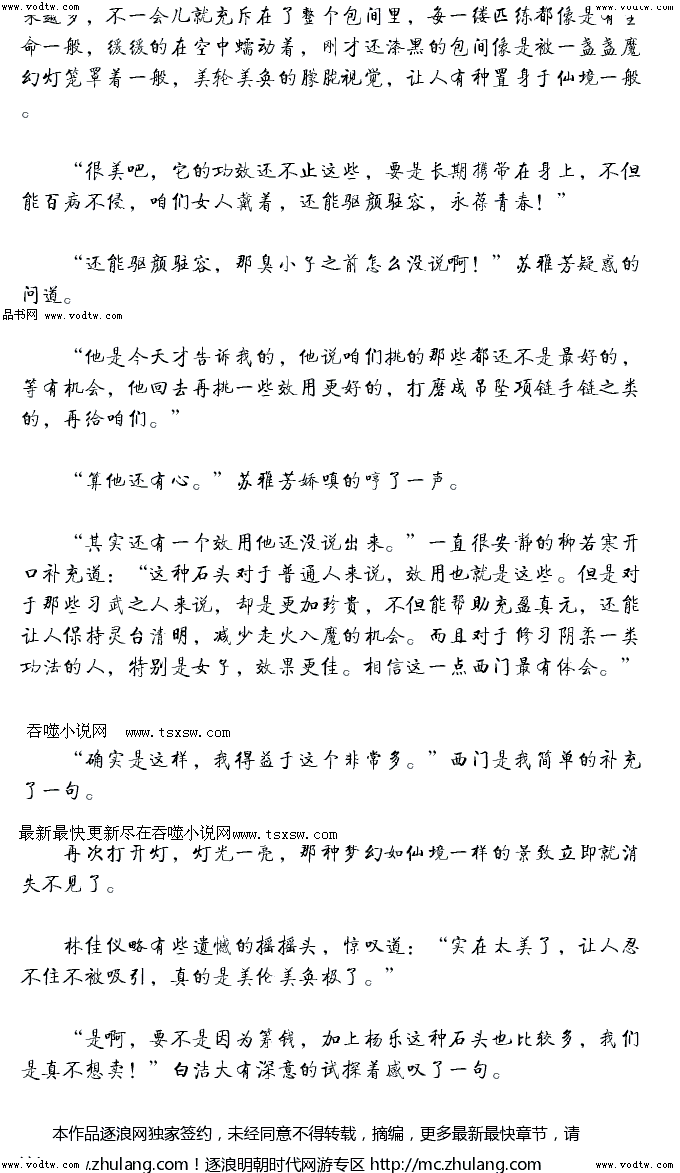 www.vodtw.com www.vodtw.com
来越多，不一会儿就充斥在了整个包间里，每一缕匹练都像是有生
命一般，缓缓的在空中蠕动着，刚才还漆黑的包间像是被一盏盏魔
幻灯笼罩着一般，美轮美奂的朦胧视觉，让人有种置身于仙境一般
。
“很美吧，它的功效还不止这些，要是长期携带在身上，不但
能百病不侵，咱们女人戴着，还能驱颜驻容，永葆青春！”
“还能驱颜驻容，那臭小子之前怎么没说啊！”苏雅芳疑惑的
问道。
品书网 www.vodtw.com
“他是今天才告诉我的，他说咱们挑的那些都还不是最好的，
等有机会，他回去再挑一些效用更好的，打磨成吊坠项链手链之类
的，再给咱们。”
“算他还有心。”苏雅芳娇嗔的哼了一声。
“其实还有一个效用他还没说出来。”一直很安静的柳若寒开
口补充道：“这种石头对于普通人来说，效用也就是这些。但是对
于那些习武之人来说，却是更加珍贵，不但能帮助充盈真元，还能
让人保持灵台清明，减少走火入魔的机会。而且对于修习阴柔一类
功法的人，特别是女子，效果更佳。相信这一点西门最有体会。”
吞噬小说网 www.tsxsw.com
“确实是这样，我得益于这个非常多。”西门是我简单的补充
了一句。
最新最快更新尽在吞噬小说网www.tsxsw.com
再次打开灯，灯光一亮，那种梦幻如仙境一样的景致立即就消
失不见了。
林佳仪略有些遗憾的摇摇头，惊叹道：“实在太美了，让人忍
不住不被吸引，真的是美伦美奂极了。”
“是啊，要不是因为筹钱，加上杨乐这种石头也比较多，我们
是真不想卖！”白洁大有深意的试探着感叹了一句。
本作品逐浪网独家签约，未经同意不得转载，摘编，更多最新最快章节，请
www.zhulang.com！逐浪明朝时代网游专区 http://mc.zhulang.com/
www.vodtw.com www.vodtw.com